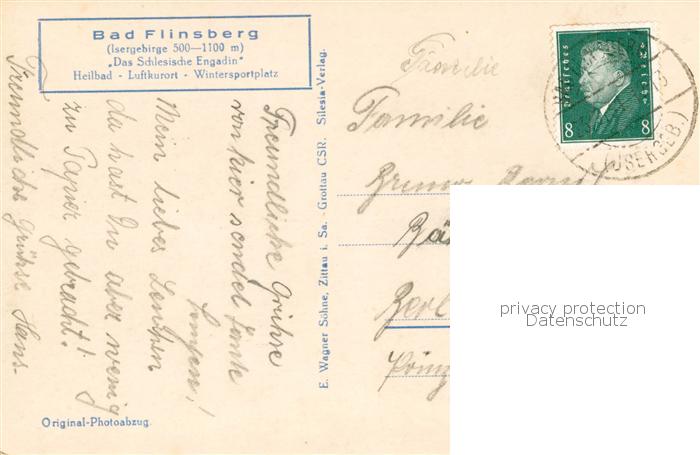 Bad Flinsberg
(Isergebirge 500—1100 m)
„Das Schlesische Engadin"
Heilbad - Luftkurort - Wintersportplatz
Freundliche Grühse
von hier sendet Tante
Mein liebes
da hast Du aber wenig
zu Papier gebracht!
Freundliche Grühse Hans.
Original-Photoabzug.
E. Wagner Söhne, Zittau i. Sa. - Grottau CSR. Silesia-Verlag.
Deutsches Reich
8 8
(ISERGEB.)
Familie
Familie
Bruno
Berl
privacy protection
Datenschutz